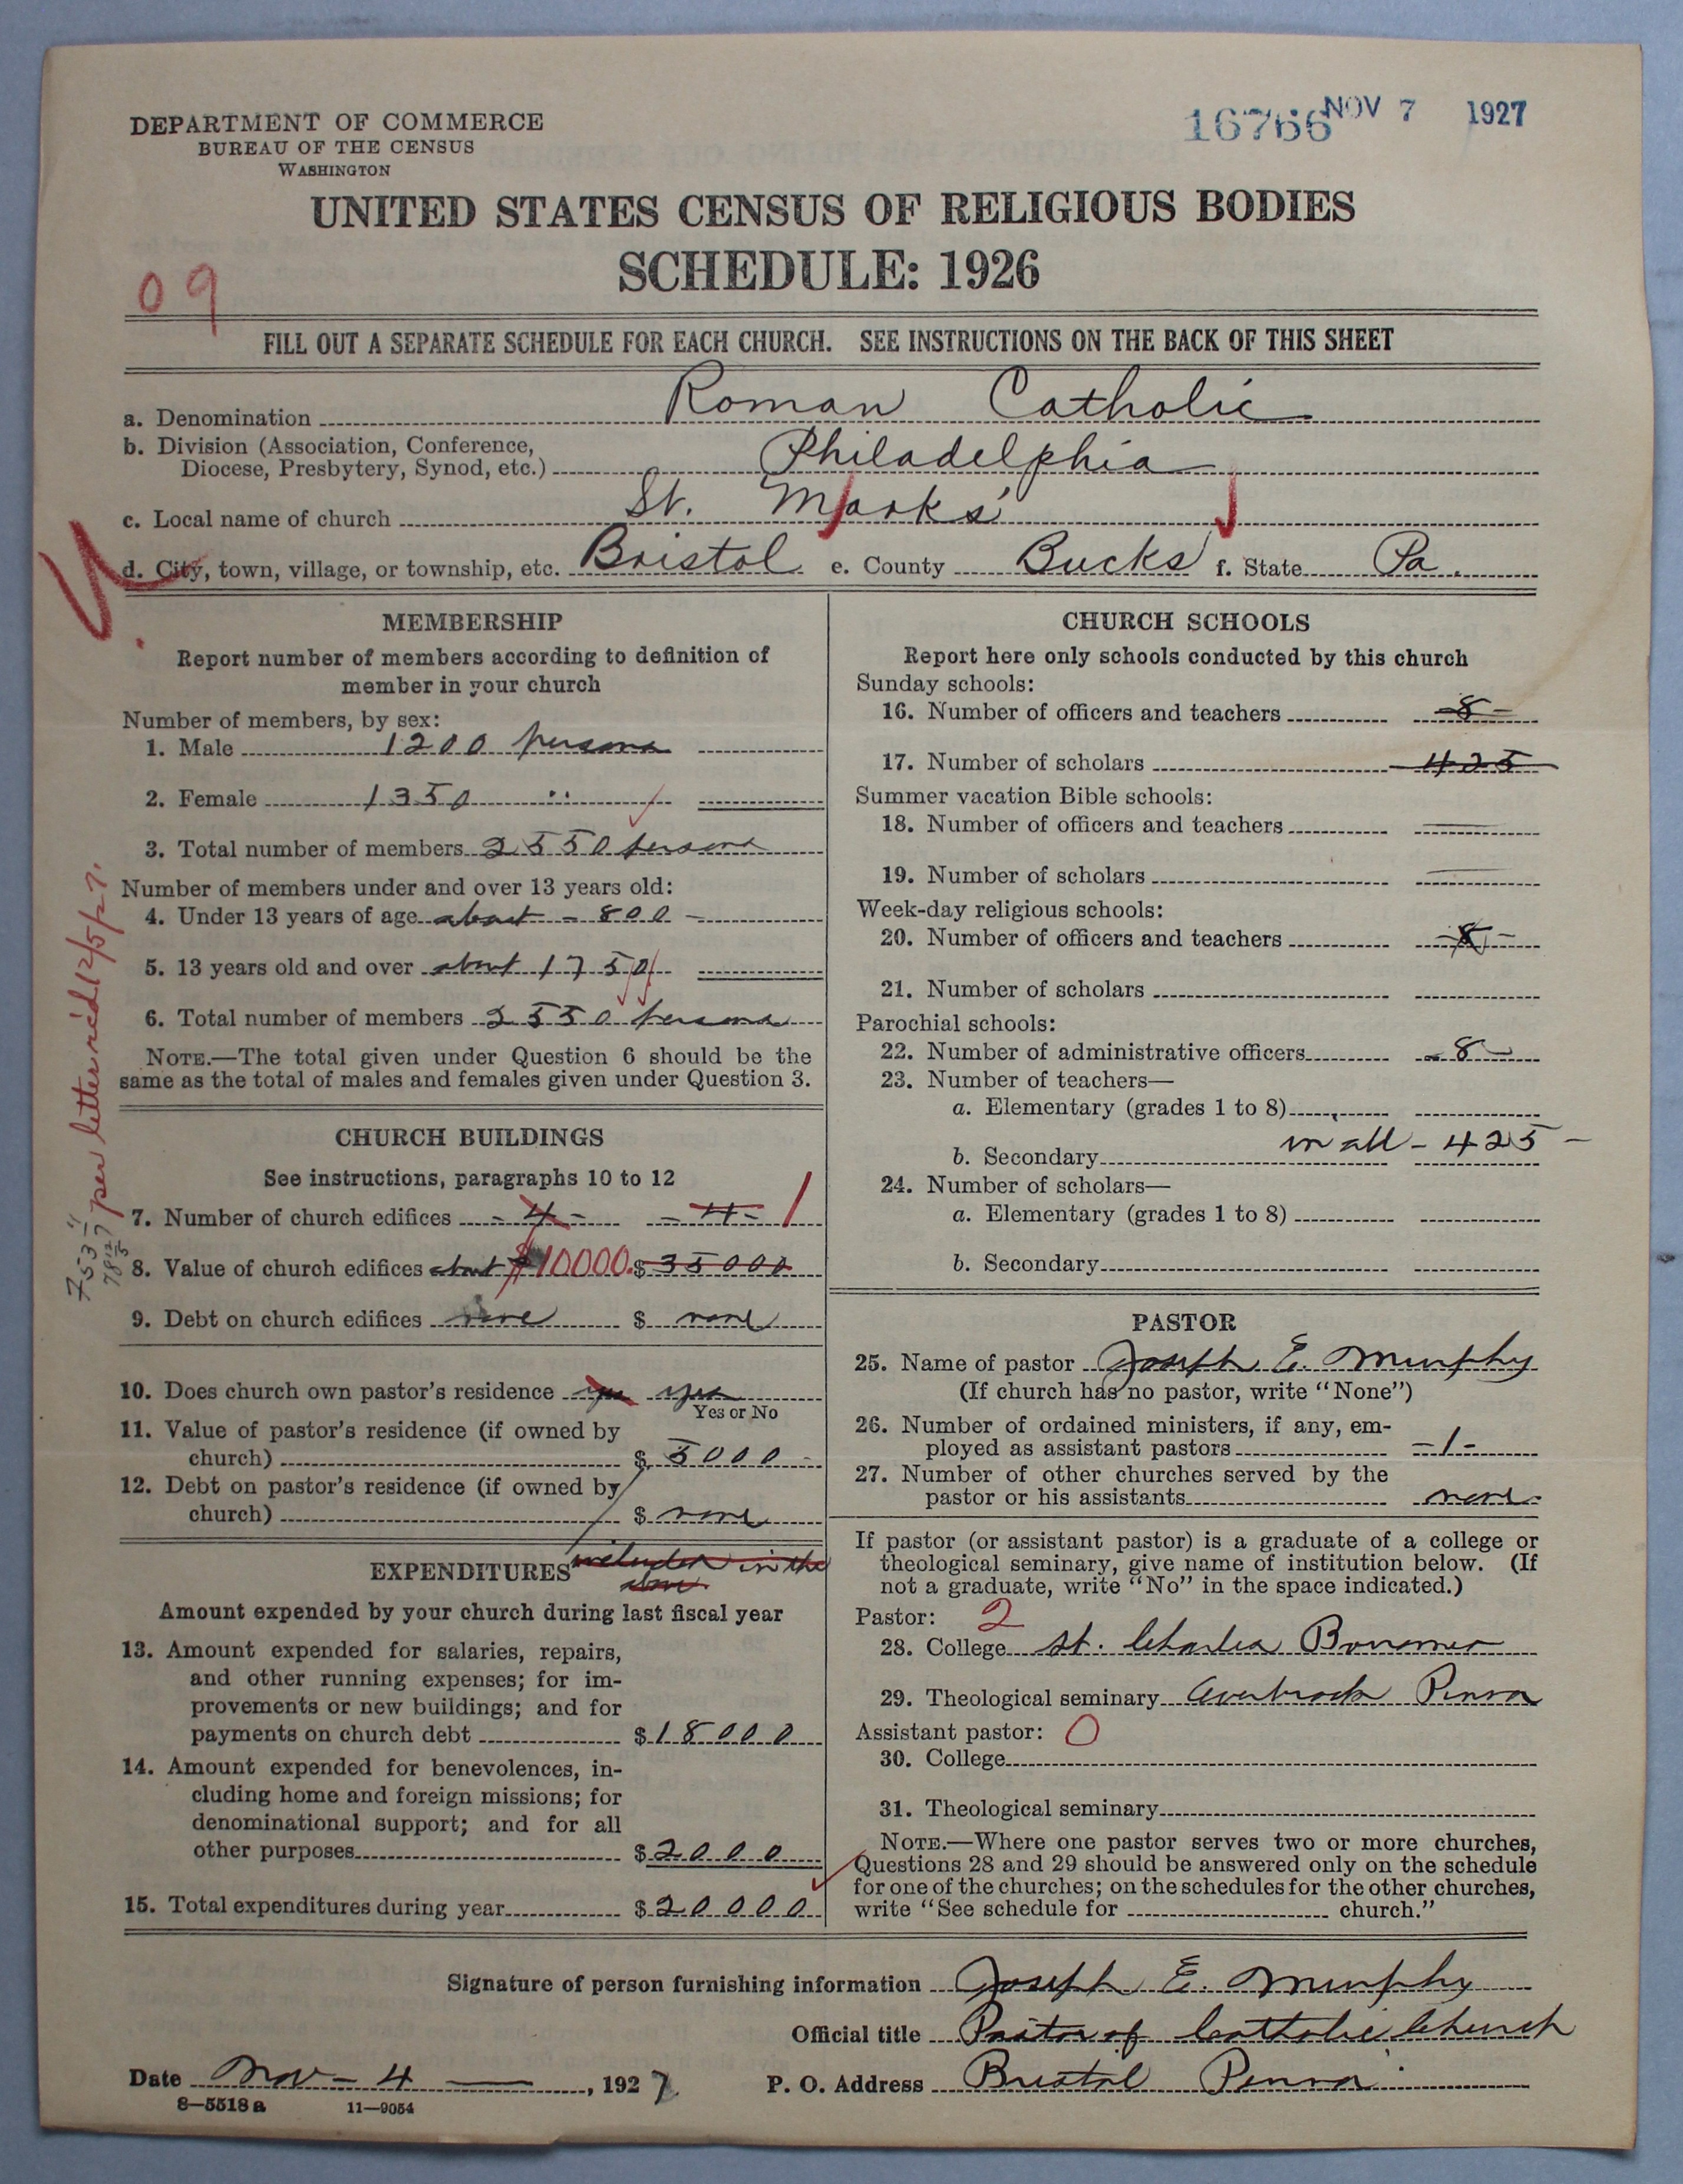 DEPARTMENT OF COMMERCE
BUREAU OF THE CENSUS
WASHINGTON
16766 NOV 7 1927
UNITED STATES CENSUS OF RELIGIOUS BODIES
SCHEDULE: 1926
09
FILL OUT A SEPARATE SCHEDULE FOR EACH CHURCH. SEE INSTRUCTIONS ON THE BACK OF THIS SHEET
a. Denomination Roman Catholic
b. Division (Association, Conference,
Diocese, Presbytery, Synod, etc.) Philadelphia
c. Local name of church St. Marks'
d. City, town, village, or township, etc. Bristol e. County Bucks f. State Pa.
MEMBERSHIP
Report number of members according to definition of
member in your church
Number of members, by sex:
1. Male 1200 persons
2. Female 1350 "
3. Total number of members 2550 persons
Number of members under and over 13 years old:
4. Under 13 years of age about - 800 -
5. 13 years old and over about 1750
6. Total number of members 2550 persons
NOTE.—The total given under Question 6 should be the
same as the total of males and females given under Question 3.
CHURCH BUILDINGS
See instructions, paragraphs 10 to 12
7. Number of church edifices - 4 - - 4 - 1
8. Value of church edifices about $10000. $ 35000
9. Debt on church edifices none $ none
10. Does church own pastor's residence yes yes
Yes or No
11. Value of pastor's residence (if owned by
church) $ 5000 -
12. Debt on pastor's residence (if owned by
church) $ none
EXPENDITURES included in the
above
Amount expended by your church during last fiscal year
13. Amount expended for salaries, repairs,
and other running expenses; for im-
provements or new buildings; and for
payments on church debt $ 18000
14. Amount expended for benevolences, in-
cluding home and foreign missions; for
denominational support; and for all
other purposes $ 2000
15. Total expenditures during year $ 20000
per letter rec'd 12/5/27.
CHURCH SCHOOLS
Report here only schools conducted by this church
Sunday schools:
16. Number of officers and teachers - 8 -
17. Number of scholars 425
Summer vacation Bible schools:
18. Number of officers and teachers
19. Number of scholars
Week-day religious schools:
20. Number of officers and teachers - 8 -
21. Number of scholars
Parochial schools:
22. Number of administrative officers - 8 -
23. Number of teachers—
a. Elementary (grades 1 to 8)
b. Secondary in all - 425 -
24. Number of scholars—
a. Elementary (grades 1 to 8)
b. Secondary
PASTOR
25. Name of pastor Joseph E. Murphy
(If church has no pastor, write "None")
26. Number of ordained ministers, if any, em-
ployed as assistant pastors - 1 -
27. Number of other churches served by the
pastor or his assistants none
If pastor (or assistant pastor) is a graduate of a college or
theological seminary, give name of institution below. (If
not a graduate, write "No" in the space indicated.)
Pastor: 2
28. College St. Charles Borromeo
29. Theological seminary Overbrook Penna
Assistant pastor: 0
30. College
31. Theological seminary
NOTE.—Where one pastor serves two or more churches,
Questions 28 and 29 should be answered only on the schedule
for one of the churches; on the schedules for the other churches,
write "See schedule for church."
Signature of person furnishing information Joseph E. Murphy
Official title Pastor of Catholic Church
Date Nov - 4, 1927 P. O. Address Bristol Penna
8—5518 a 11—9054